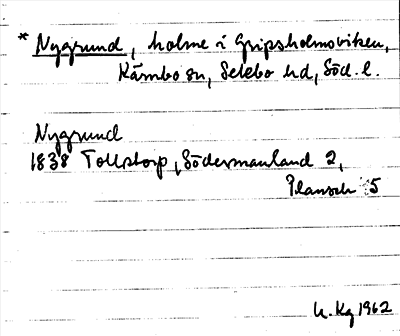 * Nygrund, holme i Gripsholmsviken,
Kärnbo sn, Selebo hd, Söd. l.
Nygrund
1838 Tollstorp, Södermanland 2,
Plansch 5
K. Kg 1962